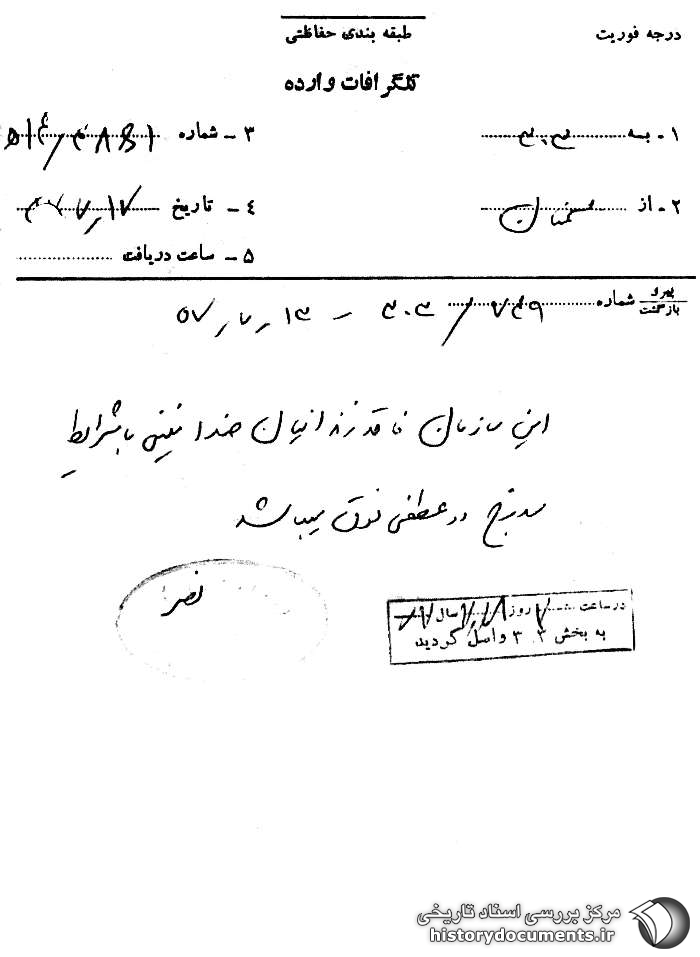 درجه فوریت
طبقه بندی حفاظتی
تلگرافات وارده
۱ - به ۳۰۳
۳ - شماره
۲ - از سمنان
۴ - تاریخ
۵ - ساعت دریافت
پیرو بازگشت شماره ۷۴۹ / ۳۰۳ -
این سازمان فاقد زندانیان ضد امنیتی با شرایط
مندرج در عطفی فوق میباشد
نصر
در ساعت روز سال
به بخش ۳۰۳ واصل گردید
مرکز بررسی اسناد تاریخی
historydocuments.ir